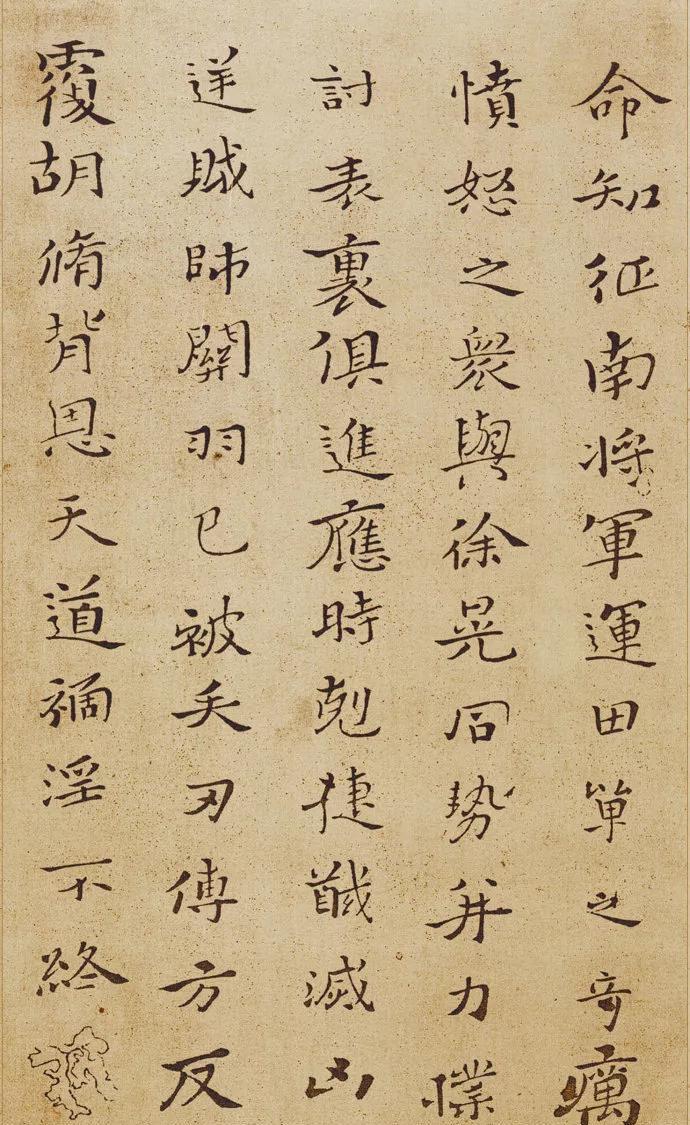 命知征南将軍運田單之奇厲
憤怒之衆與徐晃同勢并力撲
討表裏俱進應時剋捷馘滅凶
逆賊帥關羽已被矢刃傅方反
覆胡脩背恩天道禍淫不終